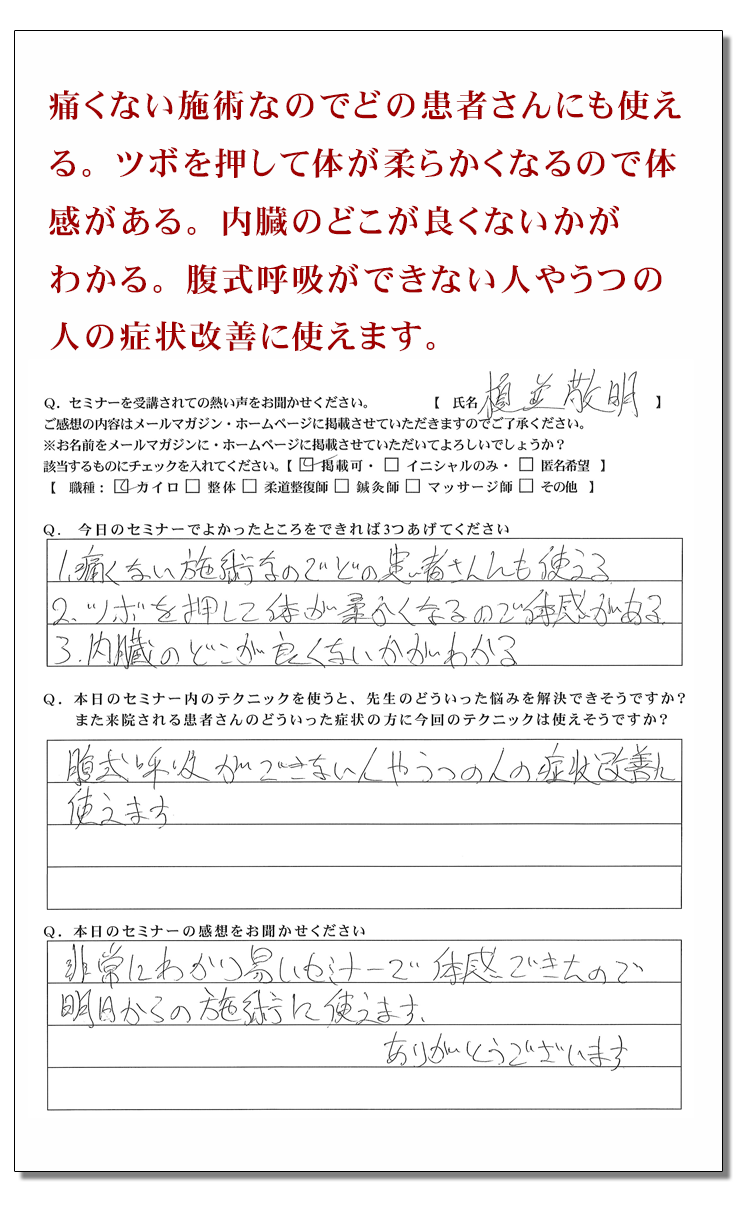 痛くない施術なのでどの患者さんにも使え
る。ツボを押して体が柔らかくなるので体
感がある。内臓のどこが良くないかが
わかる。腹式呼吸ができない人やうつの
人の症状改善に使えます。
Q．セミナーを受講されての熱い声をお聞かせください。 【 氏名 植並敬明 】
ご感想の内容はメールマガジン・ホームページに掲載させていただきますのでご了承ください。
※お名前をメールマガジンに・ホームページに掲載させていただいてよろしいでしょうか？
該当するものにチェックを入れてください。【 ☑ 掲載可・ □ イニシャルのみ・ □ 匿名希望 】
【 職種： ☑ カイロ □ 整体 □ 柔道整復師 □ 鍼灸師 □ マッサージ師 □ その他 】
Q． 今日のセミナーでよかったところをできれば3つあげてください
1.痛くない施術なのでどの患者さんにも使える
2.ツボを押して体が柔らくなるので体感がある
3.内臓のどこが良くないかがわかる
Q．本日のセミナー内のテクニックを使うと、先生のどういった悩みを解決できそうですか？
また来院される患者さんのどういった症状の方に今回のテクニックは使えそうですか？
腹式呼吸ができない人やうつの人の症状改善に
使えます
Q．本日のセミナーの感想をお聞かせください
非常にわかり易いセミナーで 体感できたので
明日からの施術に使えます。
ありがとうございます